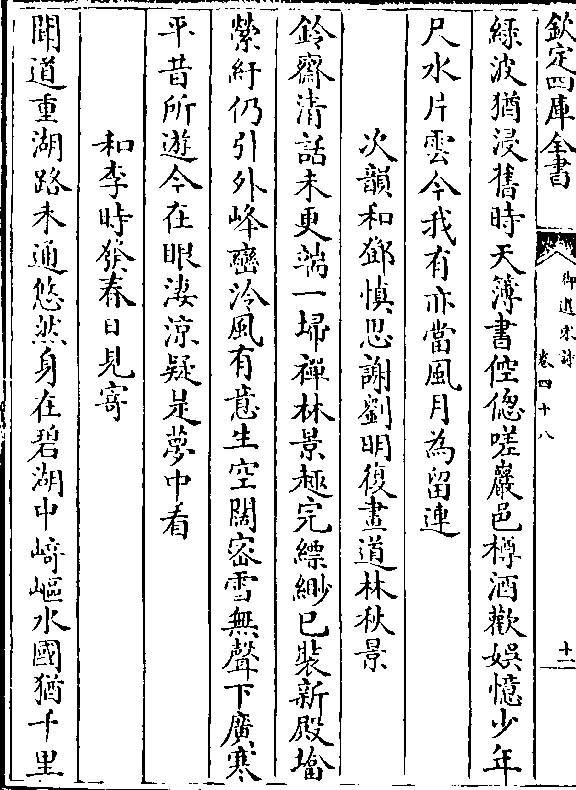 欽定四庫全書
御選宋詩
卷四十八
十二
綠波猶浸舊時天簿書倥傯嗟巖邑樽酒歡娯憶少年
尺水片雲今我有亦當風月為留連
次韻和鄧慎思謝劉明復畫道林秋景
鈴齋清話未更端一埽禪林景趣完縹緲已裝新殿㙮
縈紆仍引外峰巒泠風有意生空闊宻雪無聲下廣寒
平昔所遊今在眼淒涼疑是夢中看
和李時發春日見寄
聞道重湖路未通悠然身在碧湖中﨑嶇水國猶千里